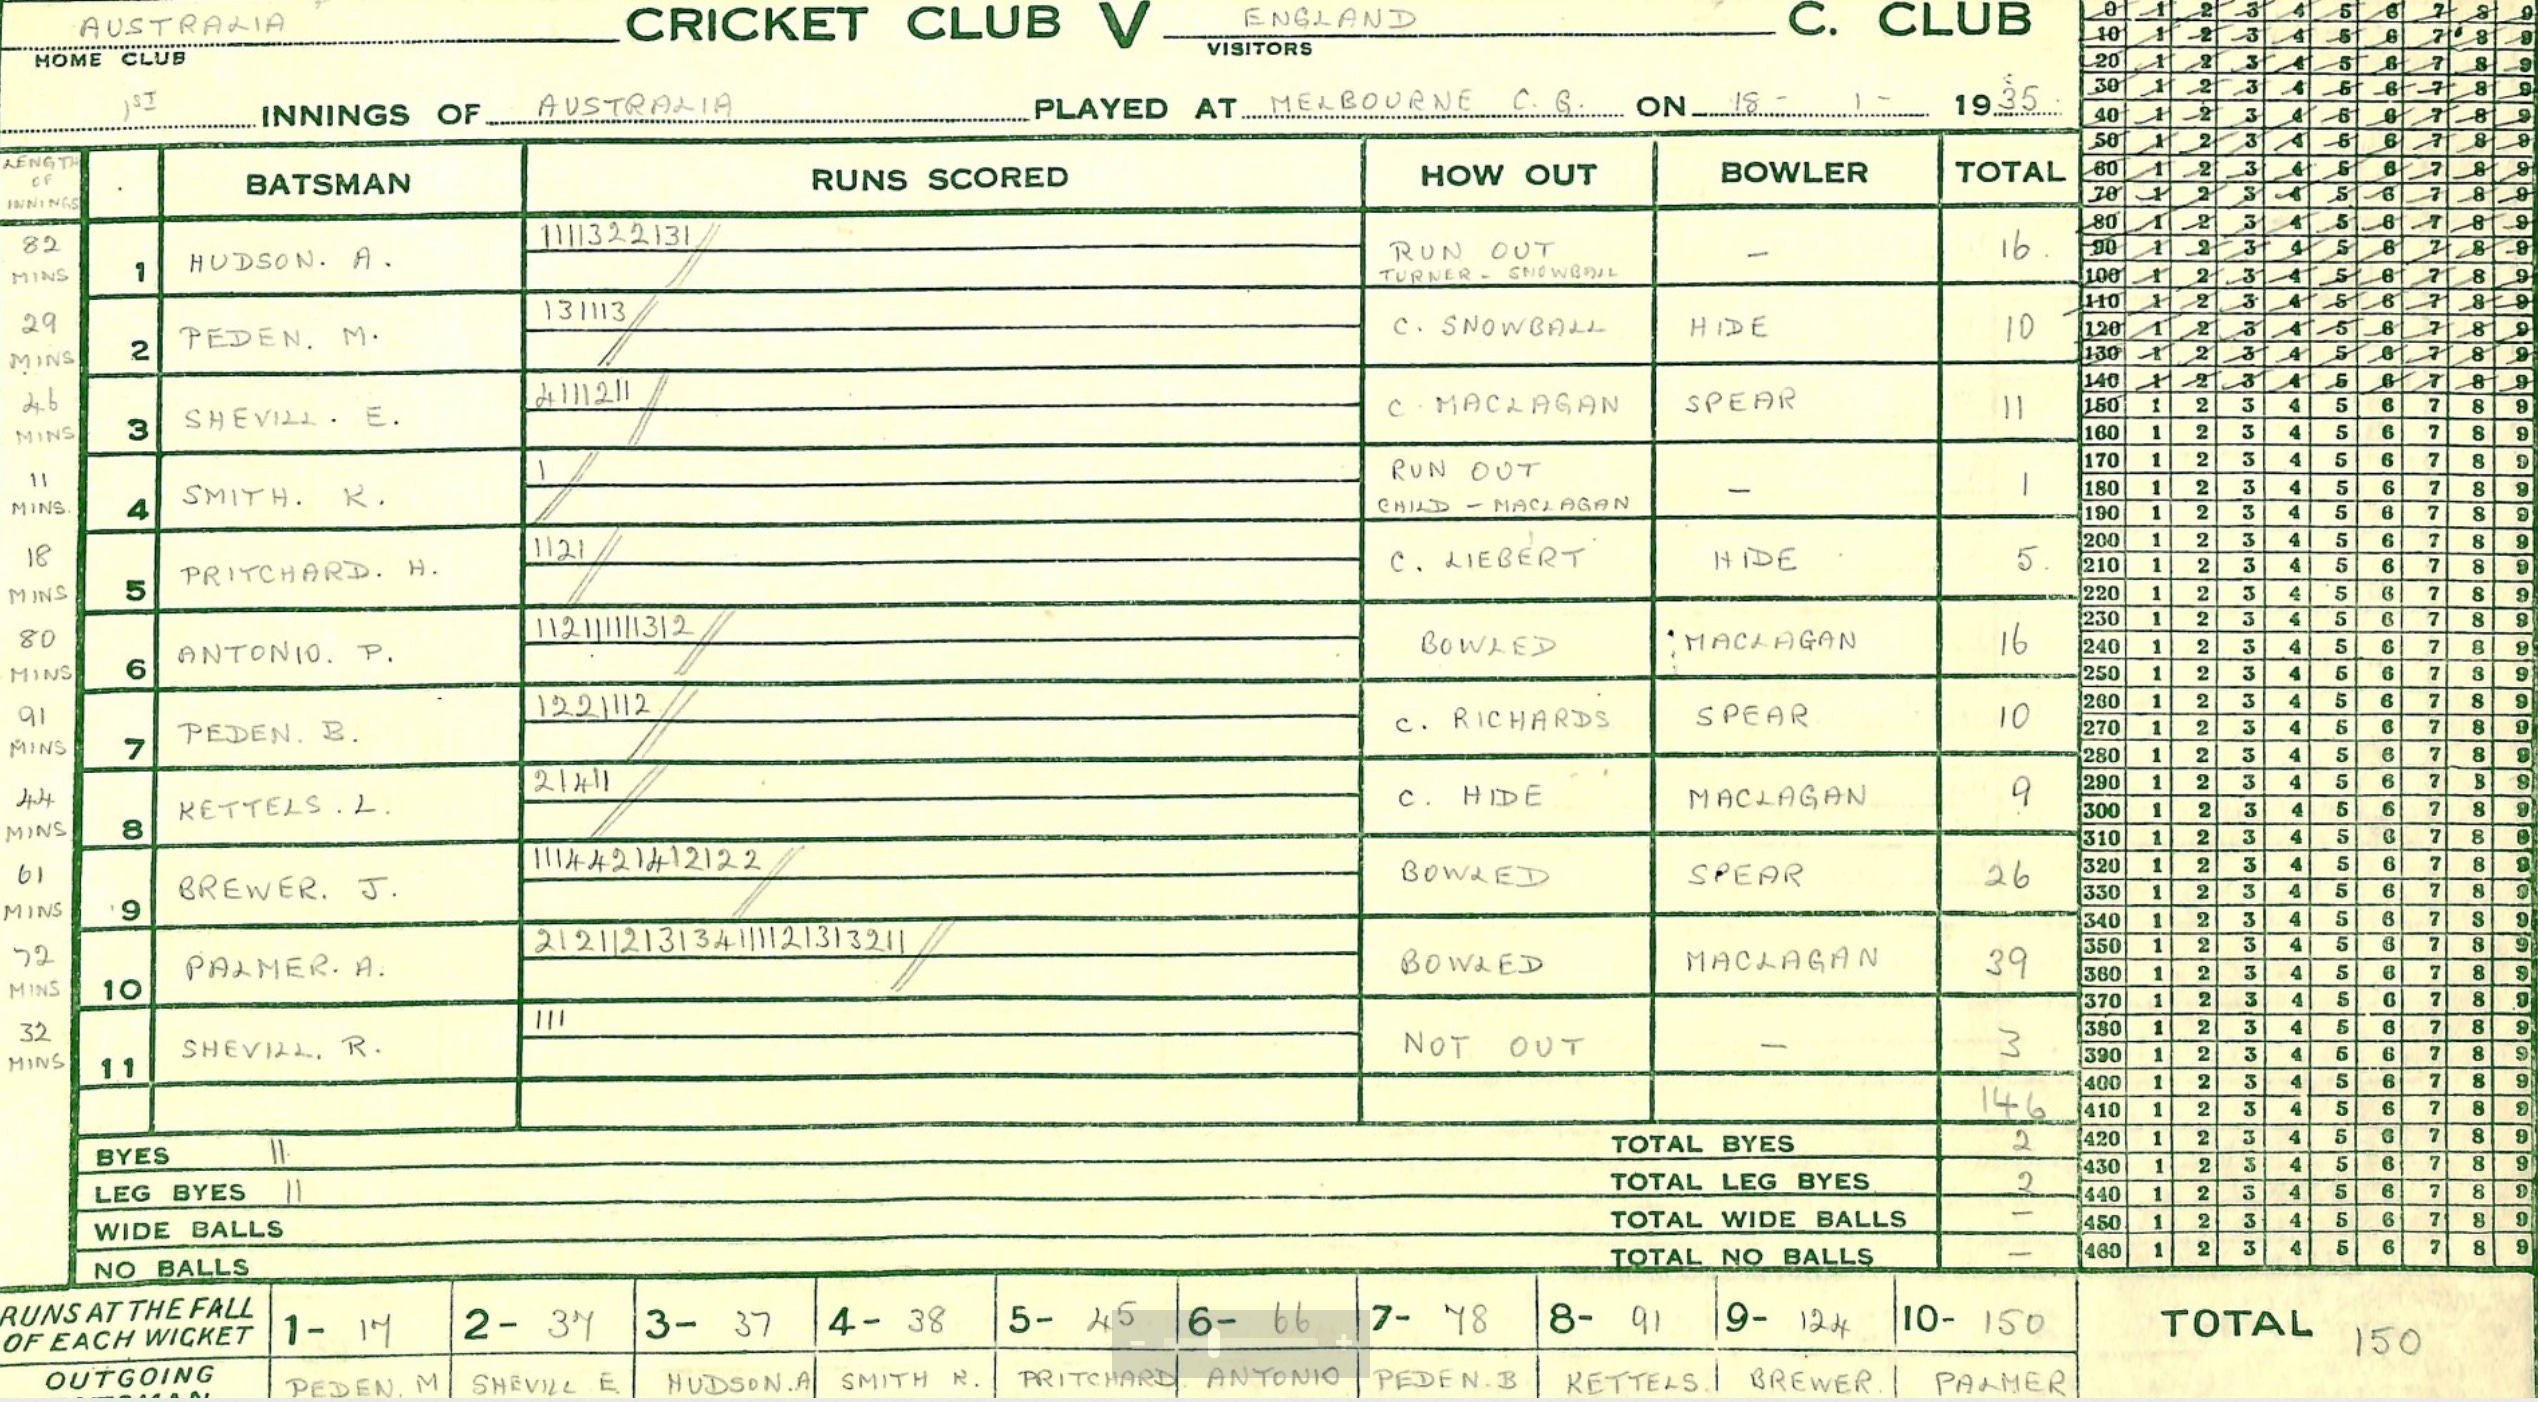 AUSTRALIA CRICKET CLUB V ENGLAND C. CLUB
HOME CLUB VISITORS
1ST INNINGS OF AUSTRALIA PLAYED AT MELBOURNE C. G. ON 18 - 1 - 1935
LENGTH OF INNINGS BATSMAN RUNS SCORED HOW OUT BOWLER TOTAL
82 MINS 1 HUDSON. A. 1111322131 RUN OUT TURNER - SNOWBALL — 16
29 MINS 2 PEDEN. M. 131113 C. SNOWBALL HIDE 10
46 MINS 3 SHEVILL. E. 4111211 C. MACLAGAN SPEAR 11
11 MINS. 4 SMITH. K. 1 RUN OUT CHILD - MACLAGAN — 1
18 MINS 5 PRITCHARD. H. 1121 C. LIEBERT HIDE 5
80 MINS 6 ANTONIO. P. BOWLED MACLAGAN 16
91 MINS 7 PEDEN. B. 1221112 C. RICHARDS SPEAR 10
44 MINS 8 KETTELS. L. 21411 C. HIDE MACLAGAN 9
61 MINS 9 BREWER. J. 1114421412122 BOWLED SPEAR 26
72 MINS 10 PALMER. A. BOWLED MACLAGAN 39
32 MINS 11 SHEVILL. R. 111 NOT OUT — 3
146
BYES 11 TOTAL BYES 2
LEG BYES 11 TOTAL LEG BYES 2
WIDE BALLS TOTAL WIDE BALLS —
NO BALLS TOTAL NO BALLS —
RUNS AT THE FALL OF EACH WICKET 1- 17 2- 37 3- 37 4- 38 5- 45 6- 66 7- 78 8- 91 9- 124 10- 150 TOTAL 150
OUTGOING PEDEN. M SHEVILL E. HUDSON. A SMITH K. PRITCHARD ANTONIO PEDEN. B KETTELS. BREWER. PALMER
0 1 2 3 4 5 6 7 8 9
10 1 2 3 4 5 6 7 8 9
20 1 2 3 4 5 6 7 8 9
30 1 2 3 4 5 6 7 8 9
40 1 2 3 4 5 6 7 8 9
50 1 2 3 4 5 6 7 8 9
60 1 2 3 4 5 6 7 8 9
70 1 2 3 4 5 6 7 8 9
80 1 2 3 4 5 6 7 8 9
90 1 2 3 4 5 6 7 8 9
100 1 2 3 4 5 6 7 8 9
110 1 2 3 4 5 6 7 8 9
120 1 2 3 4 5 6 7 8 9
130 1 2 3 4 5 6 7 8 9
140 1 2 3 4 5 6 7 8 9
150 1 2 3 4 5 6 7 8 9
160 1 2 3 4 5 6 7 8 9
170 1 2 3 4 5 6 7 8 9
180 1 2 3 4 5 6 7 8 9
190 1 2 3 4 5 6 7 8 9
200 1 2 3 4 5 6 7 8 9
210 1 2 3 4 5 6 7 8 9
220 1 2 3 4 5 6 7 8 9
230 1 2 3 4 5 6 7 8 9
240 1 2 3 4 5 6 7 8 9
250 1 2 3 4 5 6 7 8 9
260 1 2 3 4 5 6 7 8 9
270 1 2 3 4 5 6 7 8 9
280 1 2 3 4 5 6 7 8 9
290 1 2 3 4 5 6 7 8 9
300 1 2 3 4 5 6 7 8 9
310 1 2 3 4 5 6 7 8 9
320 1 2 3 4 5 6 7 8 9
330 1 2 3 4 5 6 7 8 9
340 1 2 3 4 5 6 7 8 9
350 1 2 3 4 5 6 7 8 9
360 1 2 3 4 5 6 7 8 9
370 1 2 3 4 5 6 7 8 9
380 1 2 3 4 5 6 7 8 9
390 1 2 3 4 5 6 7 8 9
400 1 2 3 4 5 6 7 8 9
410 1 2 3 4 5 6 7 8 9
420 1 2 3 4 5 6 7 8 9
430 1 2 3 4 5 6 7 8 9
440 1 2 3 4 5 6 7 8 9
450 1 2 3 4 5 6 7 8 9
460 1 2 3 4 5 6 7 8 9